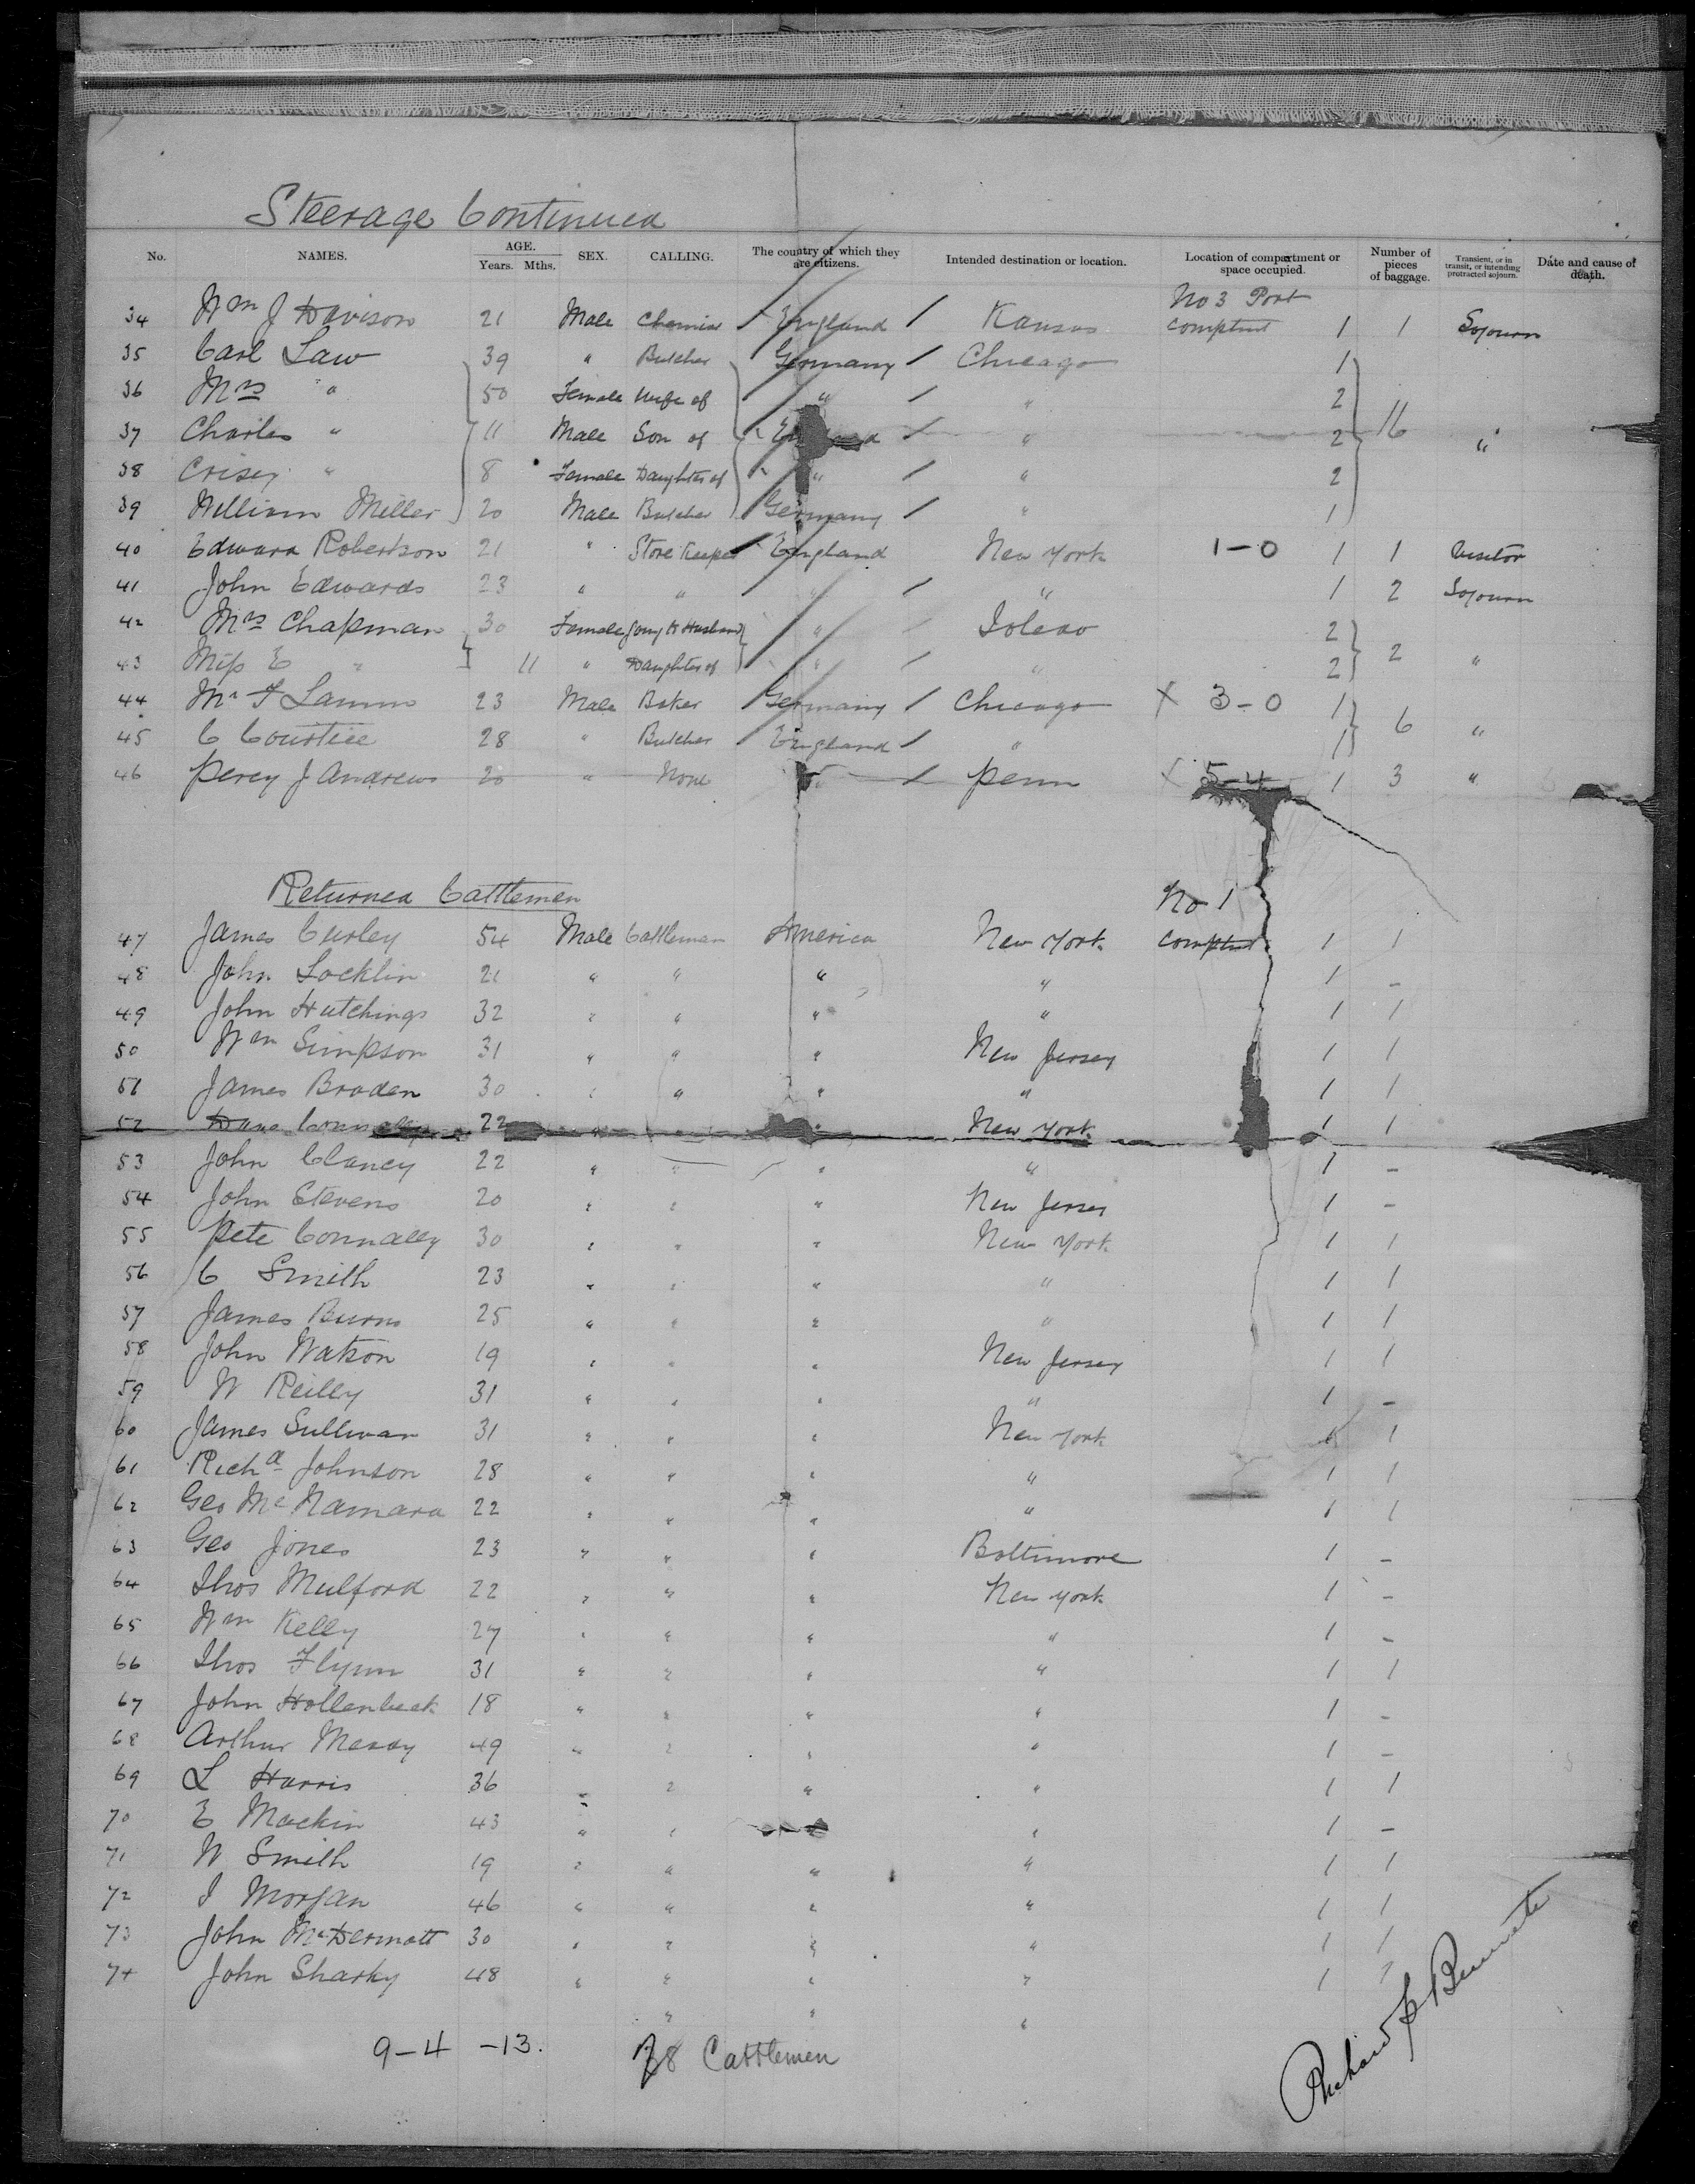 Steerage Continued
No. NAMES. AGE. Years. Mths. SEX. CALLING. The country of which they are citizens. Intended destination or location. Location of compartment or space occupied. Number of pieces of baggage. Transient, or in transit, or intending protracted sojourn. Date and cause of death.
No 3 Port
34 Wm J Davison 21 Male Chemist England Kansas Comptmt 1 1 Sojourn
35 Carl Law 39 " Butcher Germany Chicago 1
36 Mrs " 50 Female Wife of " " 2
37 Charles " 11 Male Son of " 2 16 "
38 Crisey " 8 Female Daughter of " " 2
39 William Miller 20 Male Butcher Germany " 1
40 Edward Robertson 21 " Store Keeper England New York 1-0 1 1 Visitor
41 John Edwards 23 " " " " 1 2 Sojourn
42 Mrs Chapman 30 Female Joing to Husband " Toledo 2
43 Miss E " 11 " Daughter of " " 2 2 "
44 Mr F Lamm 23 Male Baker Germany Chicago X 3-0 1
45 C Coustice 28 " Butcher England " 1 6 "
46 Percy J Andrews 20 " None " Penn X 5-4 1 3 "
Returned Cattlemen
No 1
47 James Curley 54 Male Cattleman America New York Comptmt 1 1
48 John Locklin 21 " " " " 1 -
49 John Hutchings 32 " " " " 1 1
50 Wm Simpson 31 " " " New Jersey 1 1
51 James Braden 30 " " " " 1 1
52 Dave 22 " " " New York 1 1
53 John Clancy 22 " " " " 1 -
54 John Stevens 20 " " " New Jersey 1 -
55 Pete Connally 30 " " " New York 1 1
56 C Smith 23 " " " " 1 1
57 James Burns 25 " " " " 1 1
58 John Watson 19 " " " New Jersey 1 1
59 W Reilly 31 " " " " 1 -
60 James Sullivan 31 " " " New York 1 1
61 Richd Johnson 28 " " " " 1 1
62 Geo McNamara 22 " " " " 1 1
63 Geo Jones 23 " " " Baltimore 1 -
64 Thos Mulford 22 " " " New York 1 -
65 Wm Kelly 27 " " " " 1 -
66 Thos Flynn 31 " " " " 1 1
67 John Hollenbeck 18 " " " " 1 -
68 Arthur 49 " " " " 1 -
69 L Harris 36 " " " " 1 1
70 E Mackin 43 " " " " 1 -
71 W Smith 19 " " " " 1 1
72 I Morgan 46 " " " " 1 1
73 John McDermott 30 " " " " 1 1
74 John Sharky 48 " " " " 1 1
" " "
9-4 -13. 28 Cattlemen
Richard